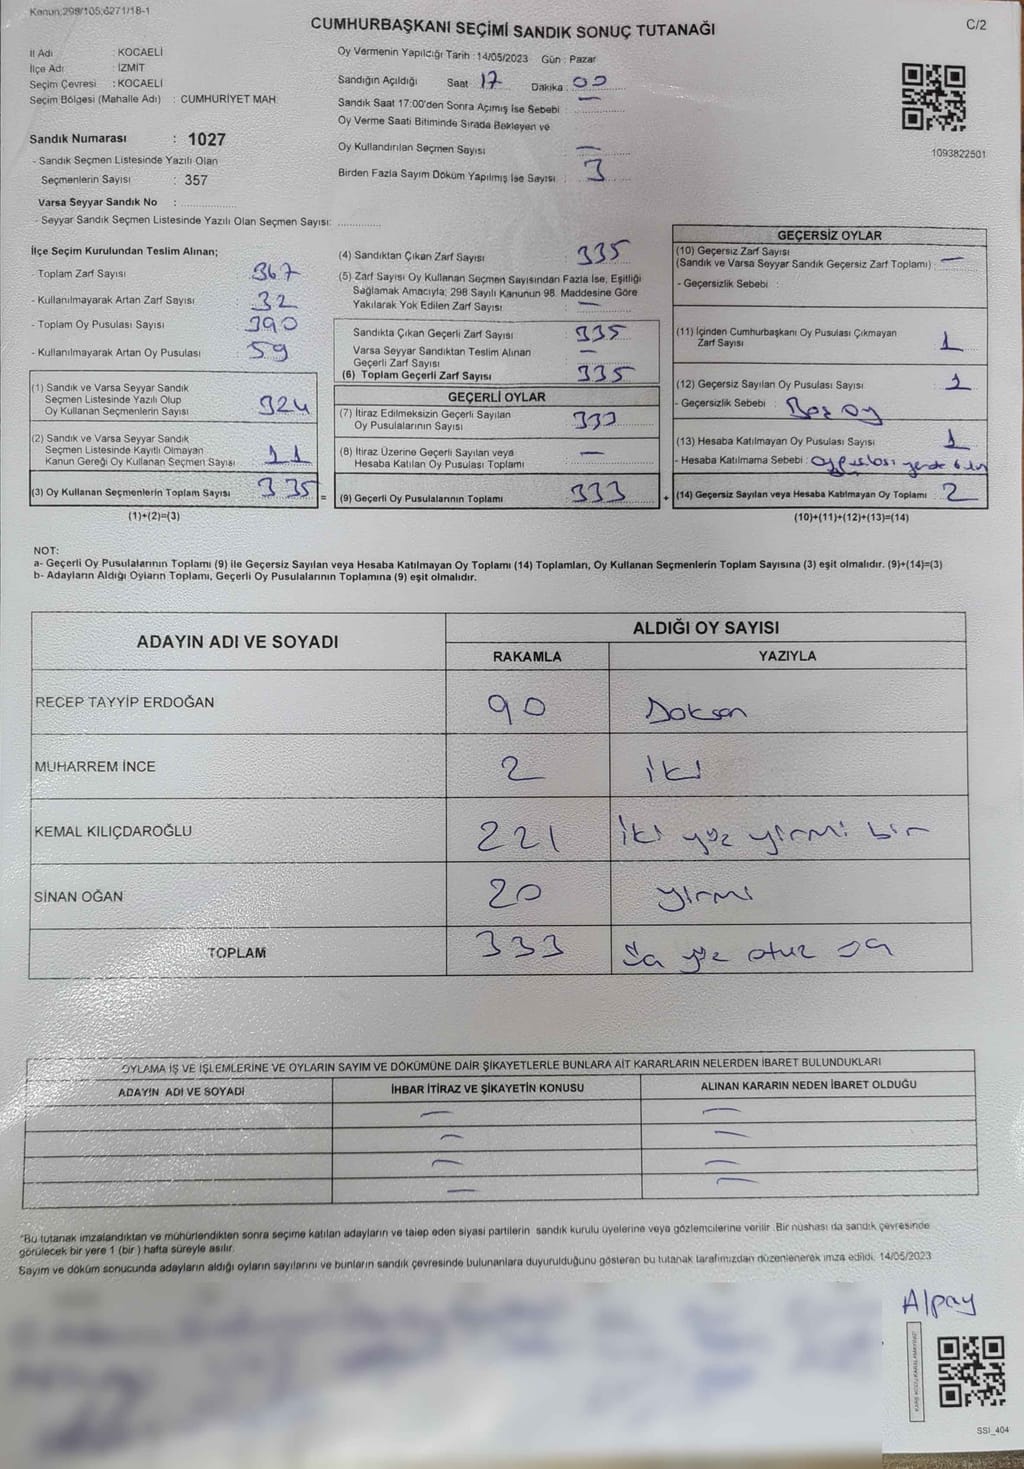 Kanun:298/105;6271/18-1
CUMHURBAŞKANI SEÇİMİ SANDIK SONUÇ TUTANAĞI
C/2
İl Adı : KOCAELİ
İlçe Adı : İZMİT
Seçim Çevresi : KOCAELİ
Seçim Bölgesi (Mahalle Adı) : CUMHURİYET MAH.
Sandık Numarası : 1027
- Sandık Seçmen Listesinde Yazılı Olan
Seçmenlerin Sayısı : 357
Varsa Seyyar Sandık No :
- Seyyar Sandık Seçmen Listesinde Yazılı Olan Seçmen Sayısı:
Oy Vermenin Yapıldığı Tarih : 14/05/2023 Gün : Pazar
Sandığın Açıldığı Saat 17 Dakika 00
Sandık Saat 17:00'den Sonra Açımış İse Sebebi : —
Oy Verme Saati Bitiminde Sırada Bekleyen ve
Oy Kullandırılan Seçmen Sayısı —
Birden Fazla Sayım Döküm Yapılmış İse Sayısı : 3
1093822501
İlçe Seçim Kurulundan Teslim Alınan;
- Toplam Zarf Sayısı 367
- Kullanılmayarak Artan Zarf Sayısı : 32
- Toplam Oy Pusulası Sayısı 390
- Kullanılmayarak Artan Oy Pusulası : 59
(1) Sandık ve Varsa Seyyar Sandık
Seçmen Listesinde Yazılı Olup
Oy Kullanan Seçmenlerin Sayısı 324
(2) Sandık ve Varsa Seyyar Sandık
Seçmen Listesinde Kayıtlı Olmayan
Kanun Gereği Oy Kullanan Seçmen Sayısı 11
(3) Oy Kullanan Seçmenlerin Toplam Sayısı 335 =
(1)+(2)=(3)
(4) Sandıktan Çıkan Zarf Sayısı 335
(5) Zarf Sayısı Oy Kullanan Seçmen Sayısından Fazla İse, Eşitliği
Sağlamak Amacıyla; 298 Sayılı Kanunun 98. Maddesine Göre
Yakılarak Yok Edilen Zarf Sayısı : —
Sandıkta Çıkan Geçerli Zarf Sayısı 335
Varsa Seyyar Sandıktan Teslim Alınan
Geçerli Zarf Sayısı —
(6) Toplam Geçerli Zarf Sayısı 335
GEÇERLİ OYLAR
(7) İtiraz Edilmeksizin Geçerli Sayılan
Oy Pusulalarının Sayısı 333
(8) İtiraz Üzerine Geçerli Sayılan veya
Hesaba Katılan Oy Pusulası Toplamı —
(9) Geçerli Oy Pusulalarının Toplamı 333 +
GEÇERSİZ OYLAR
(10) Geçersiz Zarf Sayısı
(Sandık ve Varsa Seyyar Sandık Geçersiz Zarf Toplamı) : —
- Geçersizlik Sebebi :
(11) İçinden Cumhurbaşkanı Oy Pusulası Çıkmayan
Zarf Sayısı 1
(12) Geçersiz Sayılan Oy Pusulası Sayısı 1
- Geçersizlik Sebebi : Boş oy
(13) Hesaba Katılmayan Oy Pusulası Sayısı 1
- Hesaba Katılmama Sebebi : oy pusulası
(14) Geçersiz Sayılan veya Hesaba Katılmayan Oy Toplamı 2
(10)+(11)+(12)+(13)=(14)
NOT:
a- Geçerli Oy Pusulalarının Toplamı (9) ile Geçersiz Sayılan veya Hesaba Katılmayan Oy Toplamı (14) Toplamları, Oy Kullanan Seçmenlerin Toplam Sayısına (3) eşit olmalıdır. (9)+(14)=(3)
b- Adayların Aldığı Oyların Toplamı, Geçerli Oy Pusulalarının Toplamına (9) eşit olmalıdır.
ADAYIN ADI VE SOYADI
ALDIĞI OY SAYISI
RAKAMLA YAZIYLA
RECEP TAYYİP ERDOĞAN 90 Doksan
MUHARREM İNCE 2 iki
KEMAL KILIÇDAROĞLU 221 iki yüz yirmi bir
SİNAN OĞAN 20 yirmi
TOPLAM 333 Üç yüz otuz üç
OYLAMA İŞ VE İŞLEMLERİNE VE OYLARIN SAYIM VE DÖKÜMÜNE DAİR ŞİKAYETLERLE BUNLARA AİT KARARLARIN NELERDEN İBARET BULUNDUKLARI
ADAYIN ADI VE SOYADI İHBAR İTİRAZ VE ŞİKAYETİN KONUSU ALINAN KARARIN NEDEN İBARET OLDUĞU
— —
— —
— —
— —
"Bu tutanak imzalandıktan ve mühürlendikten sonra seçime katılan adayların ve talep eden siyasi partilerin sandık kurulu üyelerine veya gözlemcilerine verilir. Bir nüshası da sandık çevresinde
görülecek bir yere 1 (bir ) hafta süreyle asılır.
Sayım ve döküm sonucunda adayların aldığı oyların sayılarını ve bunların sandık çevresinde bulunanlara duyurulduğunu gösteren bu tutanak tarafımızdan düzenlenerek imza edildi. 14/05/2023
Alpay
SSI_404